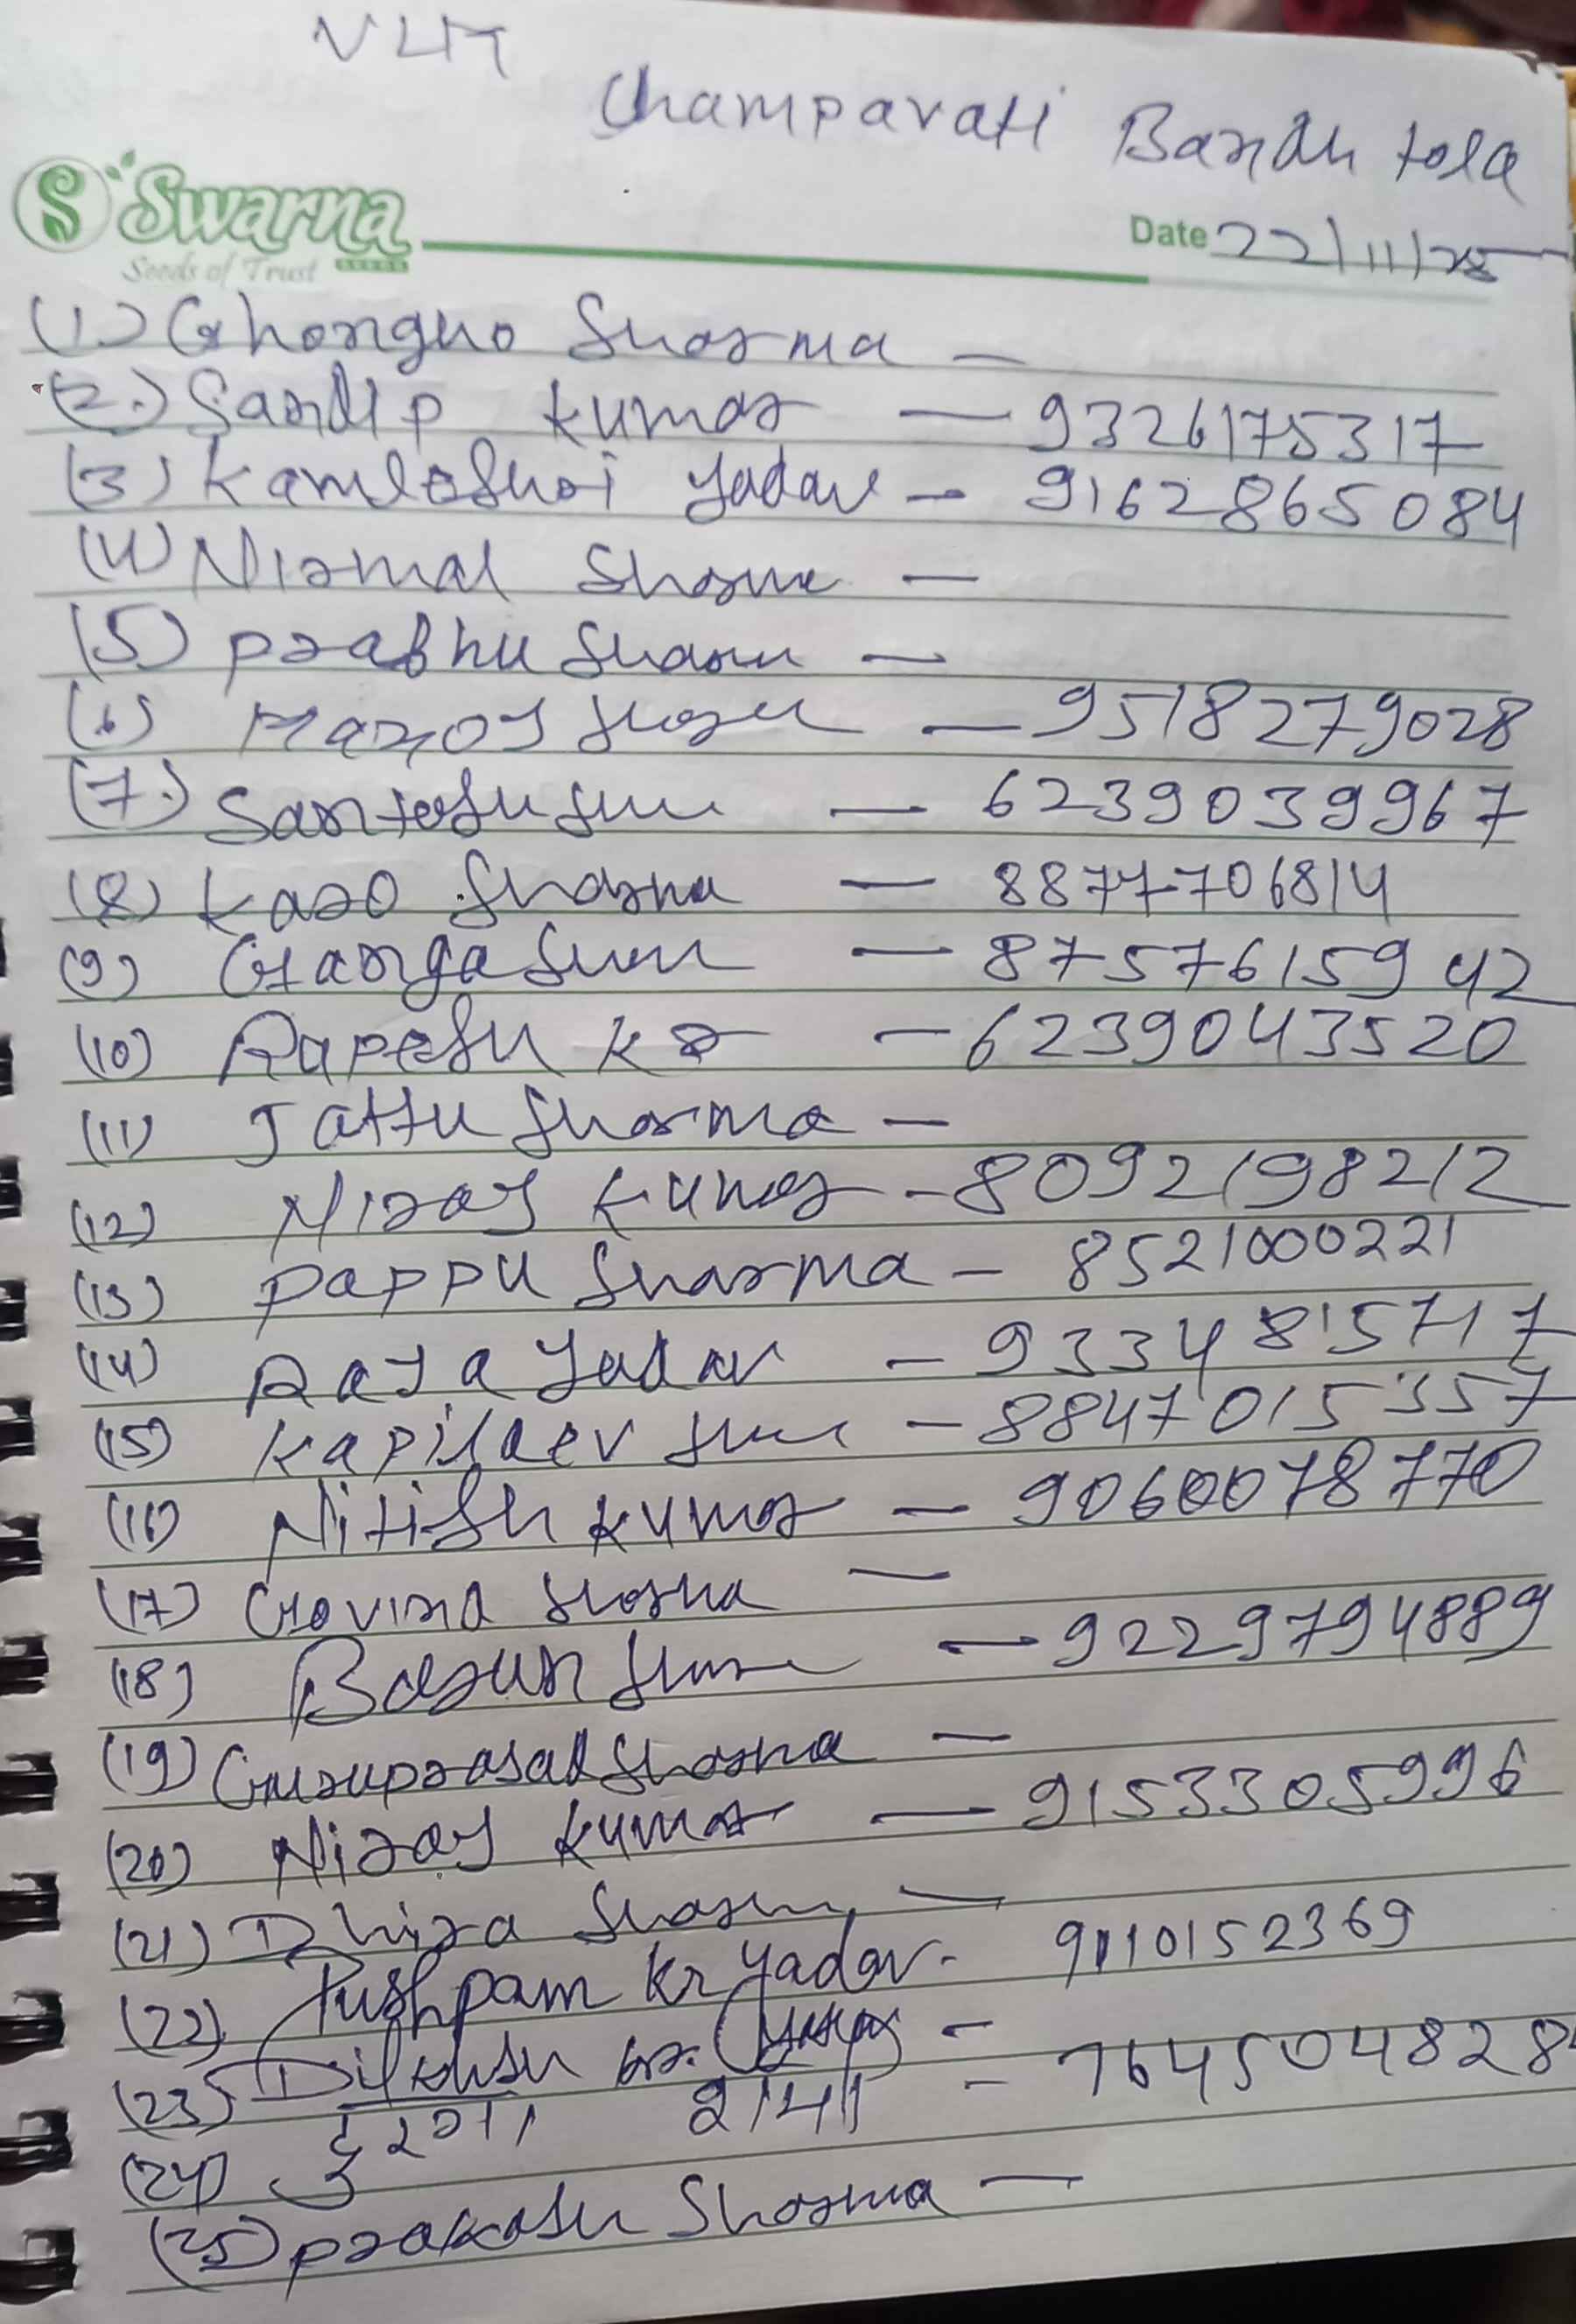 Champavati Bandh tola
Swarna
Seeds of Trust SEEDS
Date 22/11/25
(1) Ghonghro Sharma —
(2.) Sandip Kumar — 9326175317
(3) Kamleshwri Yadav — 9162865084
(4) Nirmal Sharma —
(5) Prabhu Sharma —
(6) Manoj Sharma — 9518279028
(7.) Santosh Sharma — 6239039967
(8) Karo Sharma — 8877706814
(9) Ganga Sharma — 8757615942
(10) Rupesh Kr — 6239043520
(11) Jattu Sharma —
(12) Niraj Kumar - 8092198212
(13) Pappu Sharma - 8521000221
(14) Raja Yadav - 9334815717
(15) Kapildev Sharma - 8847015357
(16) Nitish Kumar — 9060078770
(17) Govind Sharma —
(18) Sharma — 9229794889
(19) Guruprasad Sharma —
(20) Niraj Kumar — 9153305996
(21) Dhira Sharma —
(22) Pushpam Kr Yadav - 9110152369
(23) Dilkhush Kr. -
(24) - 7645048284
(25) Prakash Sharma —